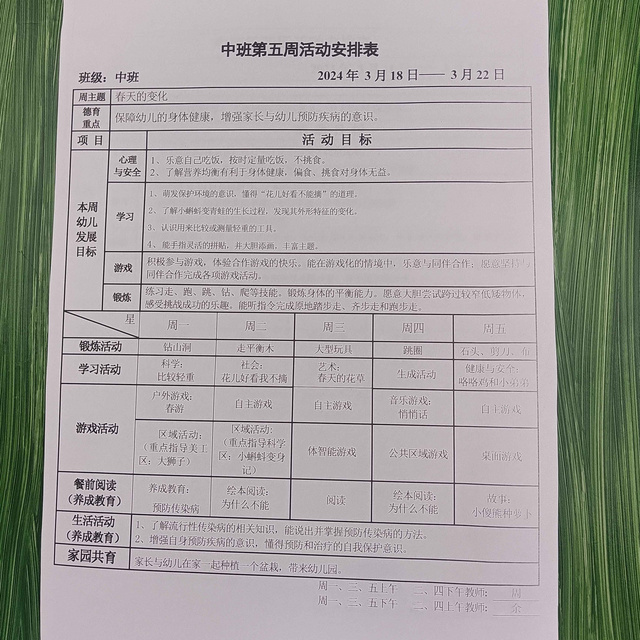 中班第五周活动安排表
班级：中班 2024 年 3 月 18 日—— 3 月 22 日
周主题 春天的变化
德育重点 保障幼儿的身体健康，增强家长与幼儿预防疾病的意识。
项 目 活 动 目 标
本周幼儿发展目标
心理与安全
1、乐意自己吃饭，按时定量吃饭，不挑食。
2、了解营养均衡有利于身体健康，偏食、挑食对身体无益。
学习
1、萌发保护环境的意识，懂得“花儿好看不能摘”的道理。
2、了解小蝌蚪变青蛙的生长过程，发现其外形特征的变化。
3、认识用来比较或测量轻重的工具。
4、能手指灵活的拼贴，并大胆添画，丰富主题。
游戏
积极参与游戏，体验合作游戏的快乐。能在游戏化的情境中，乐意与同伴合作；愿意坚持与
同伴合作完成各项游戏活动。
锻炼
练习走、跑、跳、钻、爬等技能。锻炼身体的平衡能力。愿意大胆尝试跨过较窄低矮物体，
感受挑战成功的乐趣。能听指令完成原地踏步走、齐步走和跑步走。
星 周一 周二 周三 周四 周五
锻炼活动 钻山洞 走平衡木 大型玩具 跳圈 石头、剪刀、布
学习活动 科学：比较轻重 社会：花儿好看我不摘 艺术：春天的花草 生成活动 健康与安全：咯咯鸡和小弟弟
游戏活动
户外游戏：春游 自主游戏 自主游戏 音乐游戏：悄悄话 自主游戏
区域活动：（重点指导美工区：大狮子） 区域活动：（重点指导科学区：小蝌蚪变身记） 体智能游戏 公共区域游戏 桌面游戏
餐前阅读（养成教育） 养成教育：预防传染病 绘本阅读：为什么不能 阅读 绘本阅读：为什么不能 故事：小傻熊种萝卜
生活活动（养成教育）
1、了解流行性传染病的相关知识，能说出并掌握预防传染病的方法。
2、增强自身预防疾病的意识，懂得预防和治疗的自我保护意识。
家园共育 家长与幼儿在家一起种植一个盆栽，带来幼儿园。
周一、三、五上午 二、四下午教师： 周
周一、三、五下午 二、四上午教师： 余